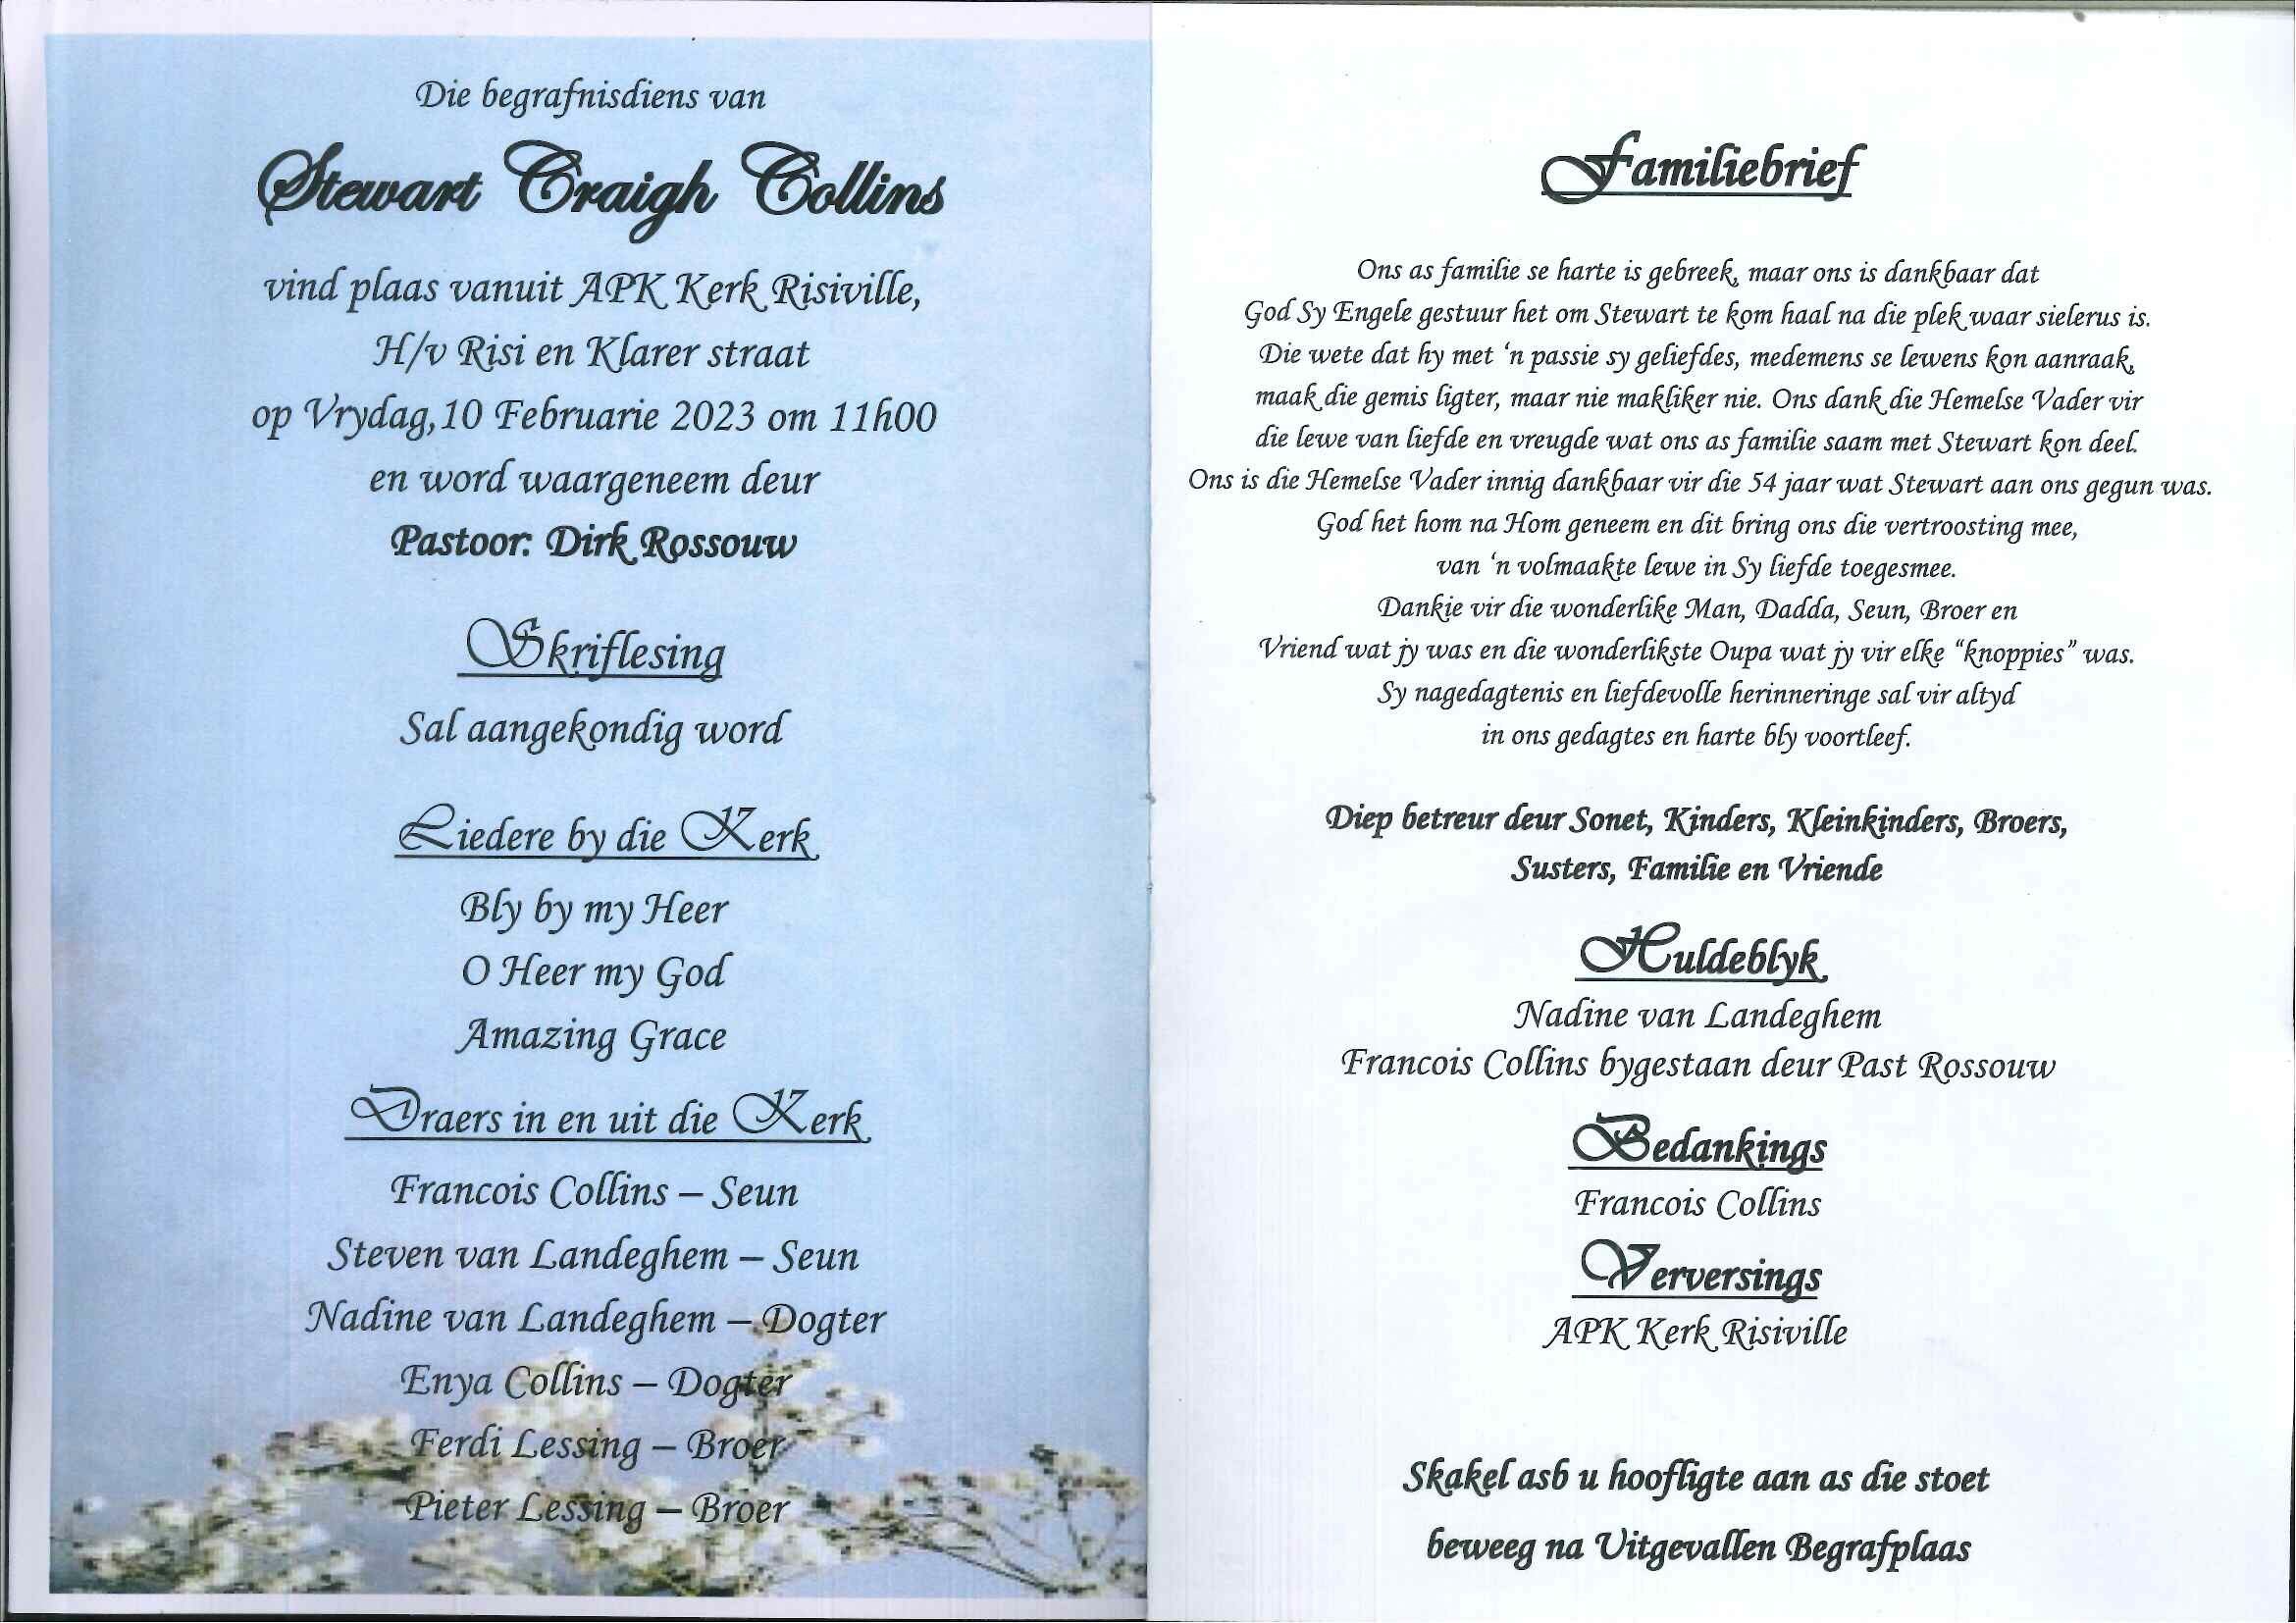 Die begrafnisdiens van
Stewart Craigh Collins
vind plaas vanuit APK Kerk Risiville,
H/v Risi en Klarer straat
op Vrydag,10 Februarie 2023 om 11h00
en word waargeneem deur
Pastoor: Dirk Rossouw
Skriflesing
Sal aangekondig word
Liedere by die Kerk
Bly by my Heer
O Heer my God
Amazing Grace
Draers in en uit die Kerk
Francois Collins – Seun
Steven van Landeghem – Seun
Nadine van Landeghem – Dogter
Enya Collins – Dogter
Ferdi Lessing – Broer
Pieter Lessing – Broer
Familiebrief
Ons as familie se harte is gebreek, maar ons is dankbaar dat
God Sy Engele gestuur het om Stewart te kom haal na die plek waar sielerus is.
Die wete dat hy met ‘n passie sy geliefdes, medemens se lewens kon aanraak,
maak die gemis ligter, maar nie makliker nie. Ons dank die Hemelse Vader vir
die lewe van liefde en vreugde wat ons as familie saam met Stewart kon deel.
Ons is die Hemelse Vader innig dankbaar vir die 54 jaar wat Stewart aan ons gegun was.
God het hom na Hom geneem en dit bring ons die vertroosting mee,
van ‘n volmaakte lewe in Sy liefde toegesmee.
Dankie vir die wonderlike Man, Dadda, Seun, Broer en
Vriend wat jy was en die wonderlikste Oupa wat jy vir elke “knoppies” was.
Sy nagedagtenis en liefdevolle herinneringe sal vir altyd
in ons gedagtes en harte bly voortleef.
Diep betreur deur Sonet, Kinders, Kleinkinders, Broers,
Susters, Familie en Vriende
Huldeblyk
Nadine van Landeghem
Francois Collins bygestaan deur Past Rossouw
Bedankings
Francois Collins
Verversings
APK Kerk Risiville
Skakel asb u hoofligte aan as die stoet
beweeg na Uitgevallen Begrafplaas